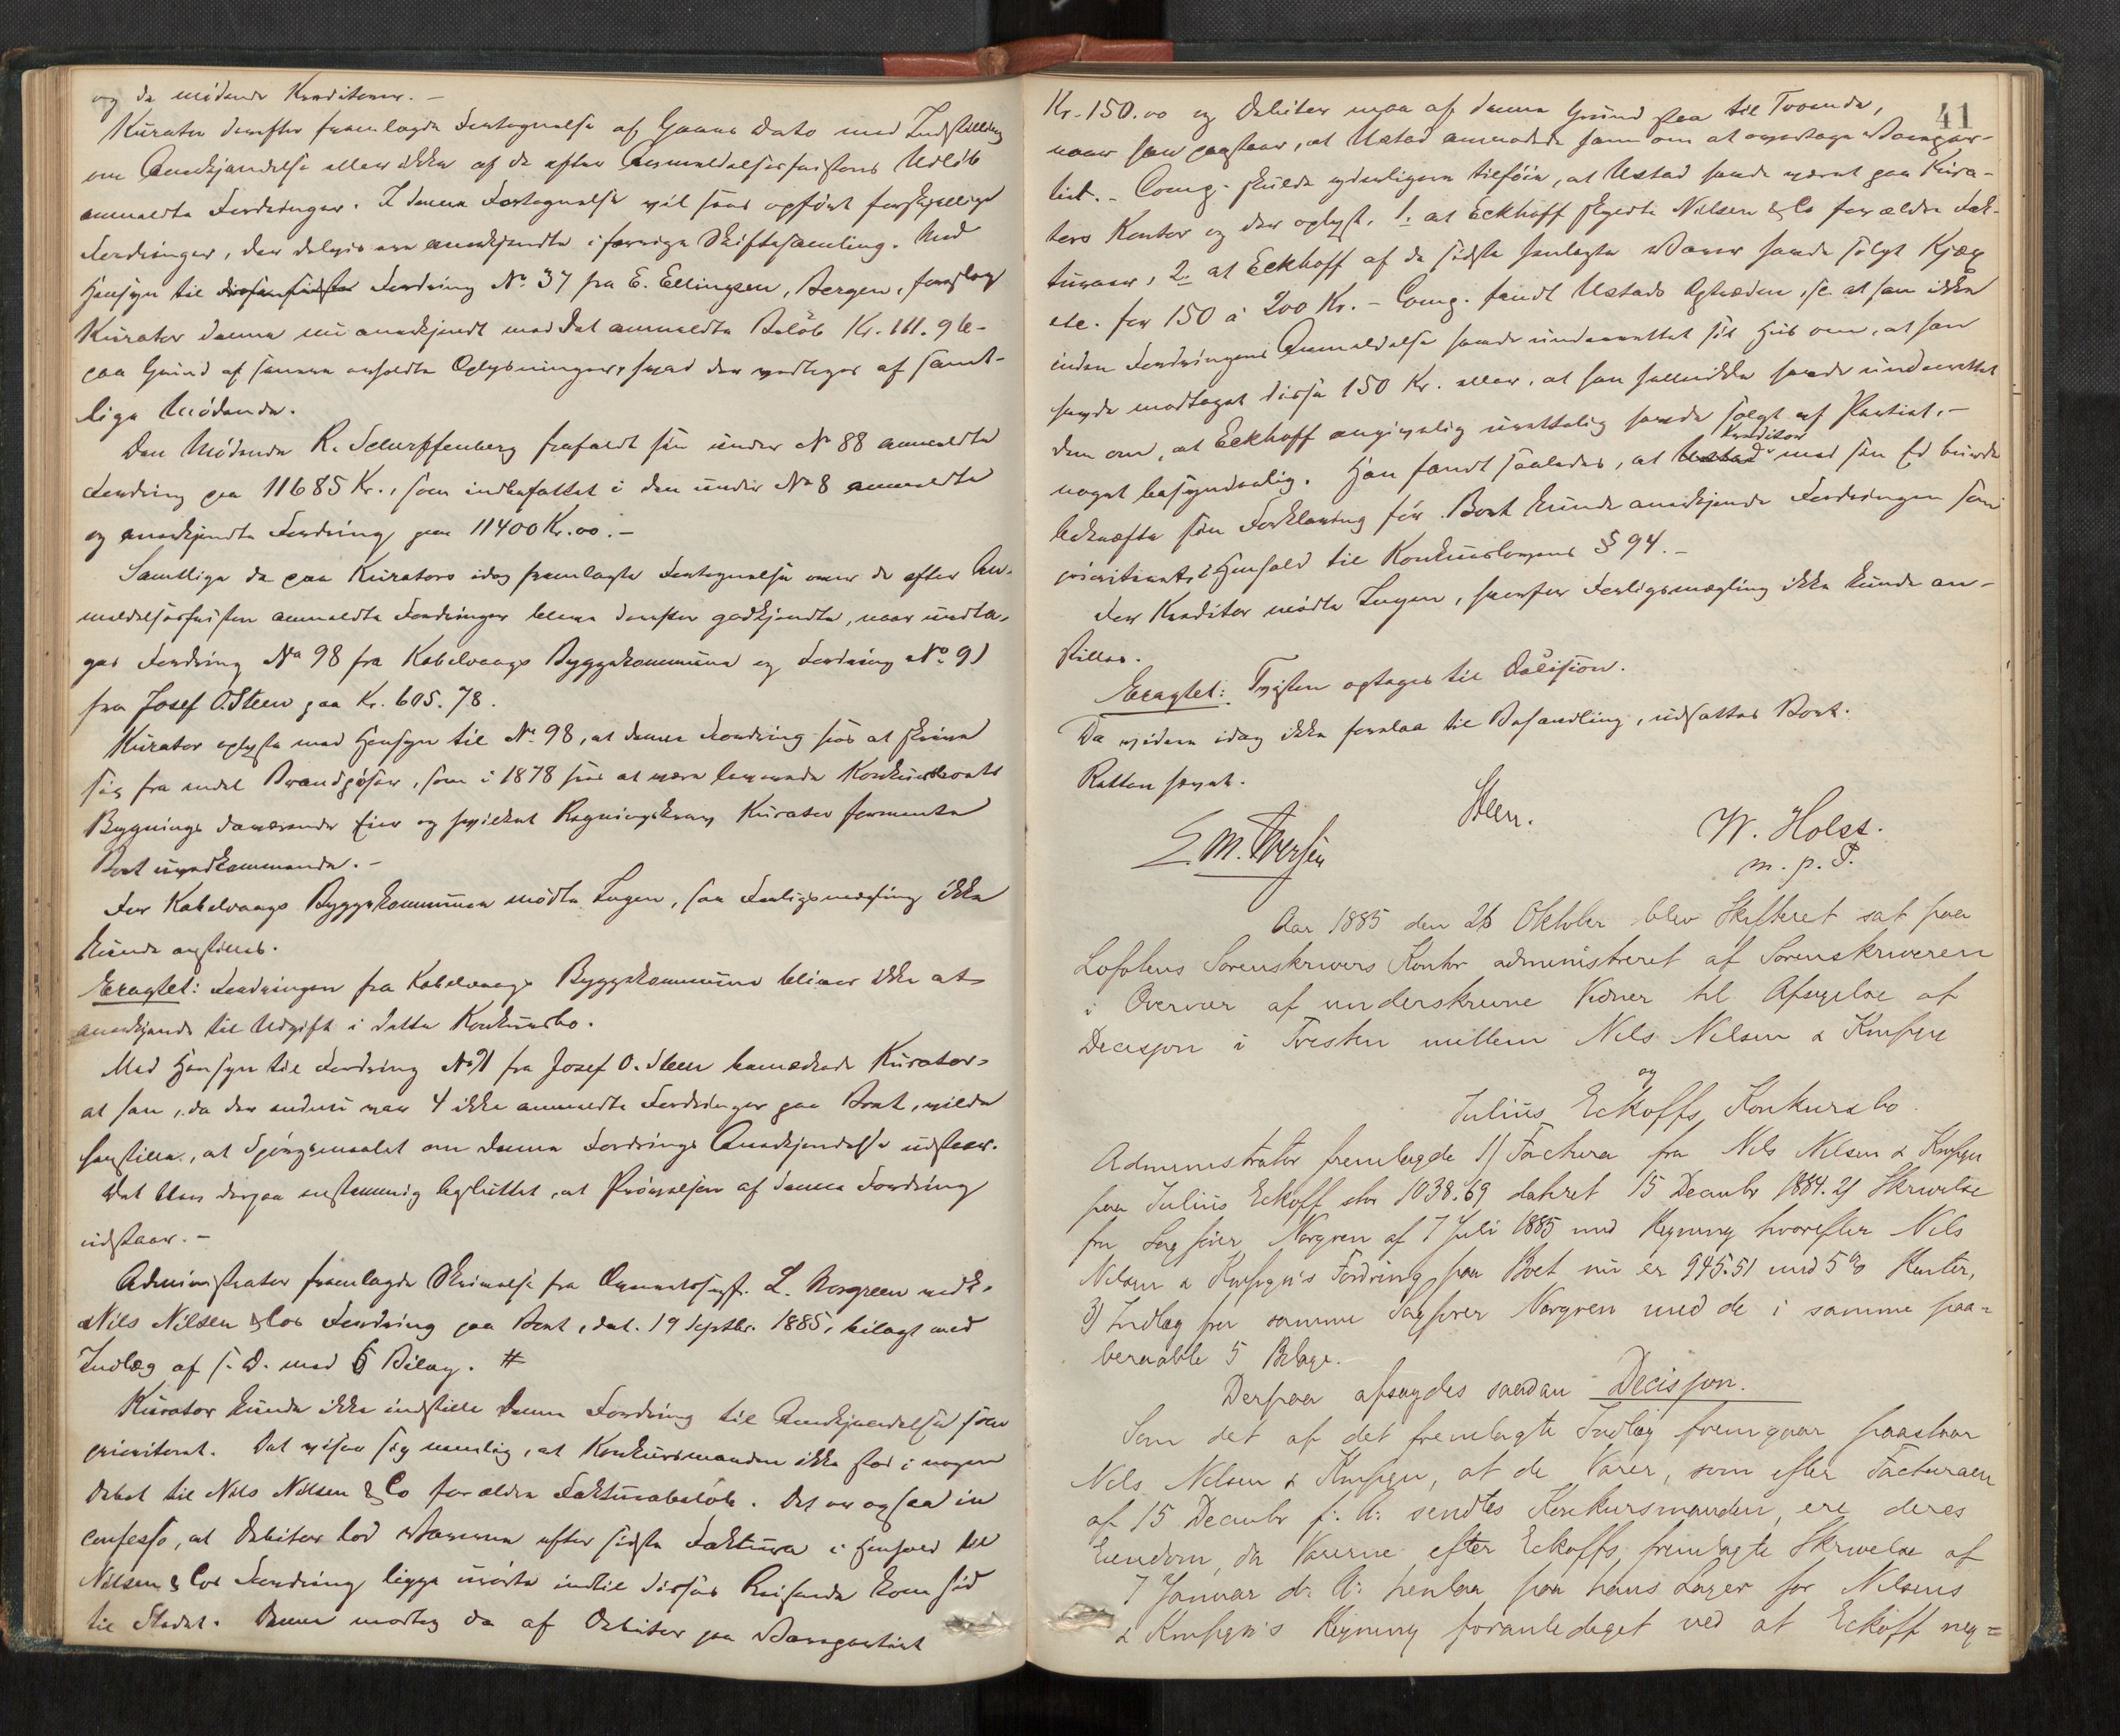 og de mødende Kreditorer. –
Kurator derefter fremlagde Fortegnelse af Gaars Dato med Indstilling
om Anerkjendelse eller ikke af de efter Anmeldelsesfristens Udløb
anmeldte Fordringer. I denne Fortegnelse vil sees opført forskjellige
Fordringer, der delvis ere anerkjendte i forrige Skiftesamling. Med
Hensyn til Fordring No 37 fra E. Ellingsen, Bergen, foreslog
Kurator denne nu anerkjendt med det anmeldte Beløb Kr. 111.96 –
paa Grund af senere erholdte Oplysninger, hvad der vedtoges af samt-
lige Mødende.
Den Mødende R. Scharffenberg frafaldt sin under No 88 anmeldte
Fordring paa 11685 Kr., som indbefattet i den under No 8 anmeldte
og anerkjendte Fordring paa 11400 Kr. 00. –
Samtlige de paa Kurators idag fremlagte Fortegnelse over de efter An-
meldelsesfristen anmeldte Fordringer bleve derefter godkjendte, naar undta-
ges Fordring No 98 fra Kabelvaags Byggekommune og Fordring No 91
fra Josef O. Steen paa Kr. 605.78.
Kurator oplyste med Hensyn til No 98, at denne Fordring sees at skrive
sig fra endel Brandpøser, som i 1878 sees at være leverede Konkursboets
Bygnings daværende Eier og hvilket Regningskrav Kurator formente
Boet uvedkommende. –
For Kabelvaags Byggekommune mødte Ingen, saa Forligsmægling ikke
kunde anstilles.
Eragtet: Fordringen fra Kabelvaags Byggekommune bliver ikke at
anerkjende til Udgift i dette Konkursbo.
Med Hensyn til Fordring No 91 fra Josef O. Steen bemærkede Kurator
at han, da der endnu var 4 ikke anmeldte Fordringer paa Boet, vilde
henstille, at Spørgsmaalet om denne Fordrings Anerkjendelse udstaar.
Det blev derpaa enstemmig besluttet, at Prøvelsen af denne Fordring
udstaar. –
Administrator fremlagde Skrivelse fra Overretssagf. L. Norgreen vedk.
Nils Nilsen & Cos Fordring paa Boet, dat. 19 Septbr. 1885, bilagt med
Indlæg af s. D. med 5 Bilag. #
Kurator kunde ikke indstille denne Fordring til Anerkjendelse som
prioriteret. Det viser sig nemlig, at Konkursmanden ikke stod i nogen
Debet til Nils Nilsen & Co for ældre Fakturabeløb. Det er ogsaa in
confesso, at Debitor lod Varerne efter sidste Faktura i Henhold til
Nilsen & Cos Fordring ligge urørte indtil disses Reisende kom hid
til Stedet. Denne modtog da af Debitor paa Varepartiet
41
Kr. 150.00 og Debitor maa af denne Grund staa til Troende,
naar han paastaar, at Ustad anmodede ham om at overtage Varepar-
tiet. – Comp. skulde yderligere tilføie, at Ustad havde været paa Kura-
tors Kontor og der oplyst, 1. at Eckhoff skyldte Nilsen & Co for ældre Fak-
turaer, 2. at Eckhoff af de sidste henlagte Varer havde solgt Kjæx
etc. for 150 à 200 Kr. – Comp. fandt Ustads Optræden, sc. at han ikke
inden Fordringens Anmeldelse havde underrettet sit Hus om, at han
havde modtaget disse 150 Kr. eller, at han hellerikke havde underrettet
dem om, at Eckhoff angivelig uretteligt havde solgt af Partiet, –
noget besynderlig. Han fandt saaledes, at Ustad Kreditor med sin Ed burde
bekræfte sin Forklaring før Boet kunde anerkjende Fordringen som
prioriteret, i Henhold til Konkurslovens § 94. –
For Kreditor mødte Ingen, hvorfor Forligsmægling ikke kunde an-
stilles.
Eragtet: Tvisten optages til Decision.
Da videre idag ikke forelaa til Behandling, udsattes Boet.
Retten hævet.
Steen.
E. M. Iversen
W. Holst.
m. p. P.
Aar 1885 den 26 Oktober blev Skifteret sat paa
Lofotens Sorenskrivers Kontor administreret af Sorenskriveren
i Overvær af underskrevne Vidner til Afsigelse af
Decisjon i Tvisten mellem Nils Nilsen & Kmpgn
og
Julius Eckoffs Konkursbo.
Administrator fremlagde 1) Factura fra Nils Nilsen & Kmpgn
paa Julius Eckoff stor 1038.69 dateret 15 Decembr 1884. 2) Skrivelse
fra Sagfører Norgren af 7 Juli 1885 med Regning hvorefter Nils
Nilsen & Kmpgn's Fordring paa Boet nu er 945.51 med 5% Renter,
3) Indlæg fra samme Sagfører Norgren med de i samme paa-
beraabte 5 Bilage.
Derpaa afsagdes saadan Decisjon.
Som det af det fremlagte Indlæg fremgaar paastaar
Nils Nilsen & Kmpgn, at de Varer, som efter Facturaen
af 15 Decembr f. A. sendtes Konkursmanden, ere deres
Eiendom, da Varerne efter Eckoffs fremlagte Skrivelse af
7 Januar d. A. henlaa paa hans Lager for Nilsens
& Kmpgn's Regning foranlediget ved at Eckoff neg=